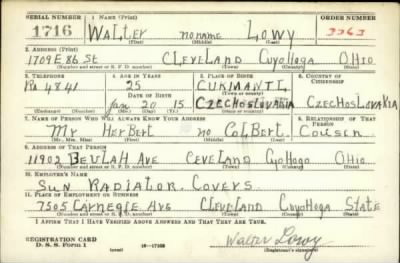 SERIAL NUMBER 1. Name (Print) ORDER NUMBER
1716 WALTER noname LOWY 3363
(First) (Middle) (Last)
2. Address (Print)
1709 E 86 St CLEVELAND Cuyohoga Ohio
(Number and street or R. F. D. number) (Town) (County) (State)
3. Telephone 4. Age in Years 5. Place of Birth 6. Country of Citizenship
25 CURMANTL
Ra 4841 Date of Birth (Town or county)
Jan 20 15 CZECHOSLOVAKIA CZECHoSLOVAKIA
(Exchange) (Number) (Mo.) (Day) (Yr.) (State or country)
7. Name of Person Who Will Always Know Your Address 8. Relationship of That Person
Mr HerBert no ColBert Cousin
(Mr., Mrs., Miss) (First) (Middle) (Last)
9. Address of That Person
11902 BEULAH AVE CEVELAND CyoHoga Ohio
(Number and street or R. F. D. number) (Town) (County) (State)
10. Employer's Name
SUN RADIATOR COVERS
11. Place of Employment or Business
7505 CARNEGIE AVE CLEVELAND Cuyohoga STATE
(Number and street or R. F. D. number) (Town) (County) (State)
I Affirm That I Have Verified Above Answers and That They Are True.
REGISTRATION CARD
D. S. S. Form 1 (over) Walter Lowy
(Registrant's signature)